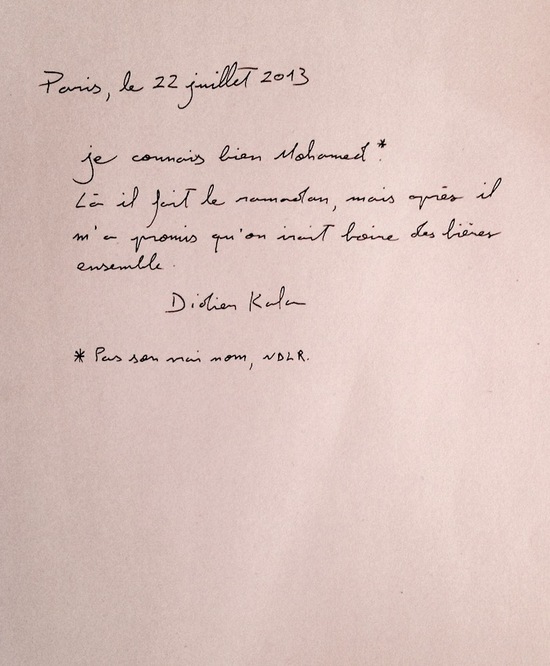 Paris, le 22 juillet 2013
je connais bien Mohamed*.
Là il fait le ramadan, mais après il
m'a promis qu'on irait boire des bières
ensemble.
Didier Kala
* Pas son vrai nom, NDLR.